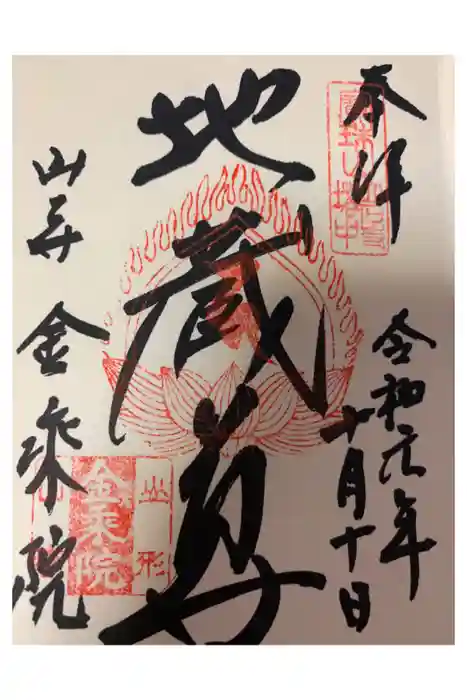 奉拝
令和元年
十月十日
地蔵尊
山寺 金乗院
山形
金乗院